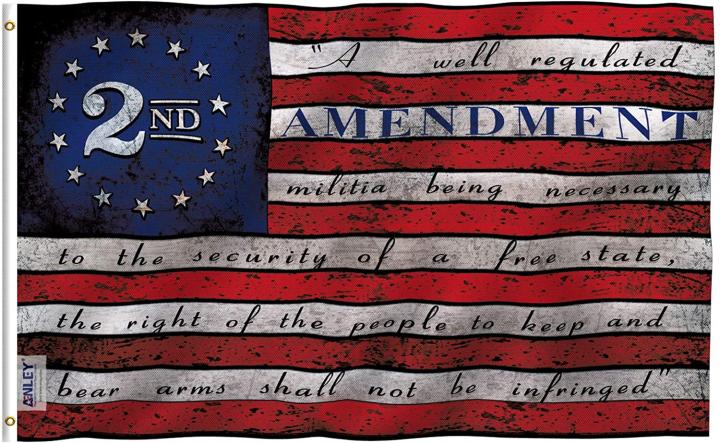 2ND
"A well regulated
AMENDMENT
militia being necessary
to the security of a free state,
the right of the people to keep and
bear arms shall not be infringed"
ANLEY